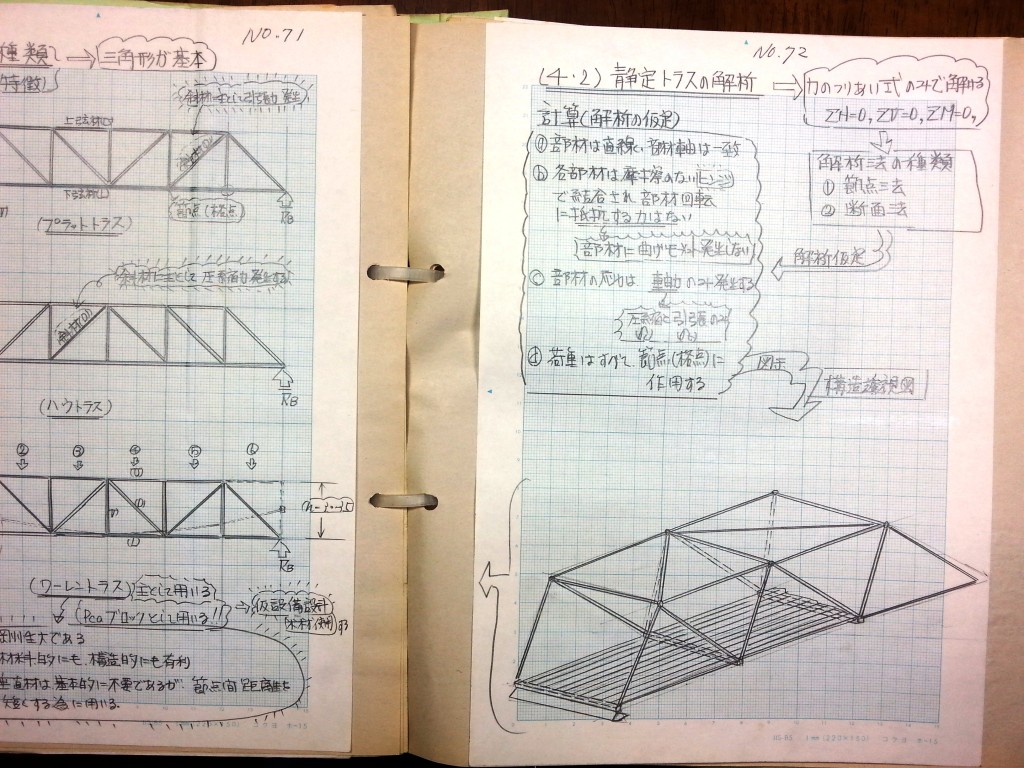 NO.71
種類 ⇒ 三角形が基本
特徴)
上弦材(U)
斜材(D)
下弦材(L)
節点(格点)
RB
(プラットトラス)
斜材に主として圧縮力発生する
斜材(D)
RB
(ハウトラス)
② ③ ④ ⑤ ⑥
RB
(ワーレントラス) 主として用いる
(Pcaブロックとして用いる!!) ⇒ 仮設備設計
剛性大である
材料的にも、構造的にも有利
垂直材は基本的に不要であるが、節点間距離を
短くする為に用いる。
NO.72
(4・2) 静定トラスの解析 ⇒ 力のつりあい式のみで解ける
ΣH=0, ΣV=0, ΣM=0,
計算(解析の仮定)
解析法の種類
① 節点法
②断面法
ⓐ 部材は直線で、部材軸は一致
ⓑ 各部材は摩擦のないヒンジ
で結合され部材回転
に抵抗する力はない
(部材に曲げモーメント発生しない)
解析仮定
ⓒ 部材の応力は 軸力のみ発生する
圧縮と引張のみ
ⓓ 荷重はすべて、節点(格点)に
作用する
図示
構造透視図